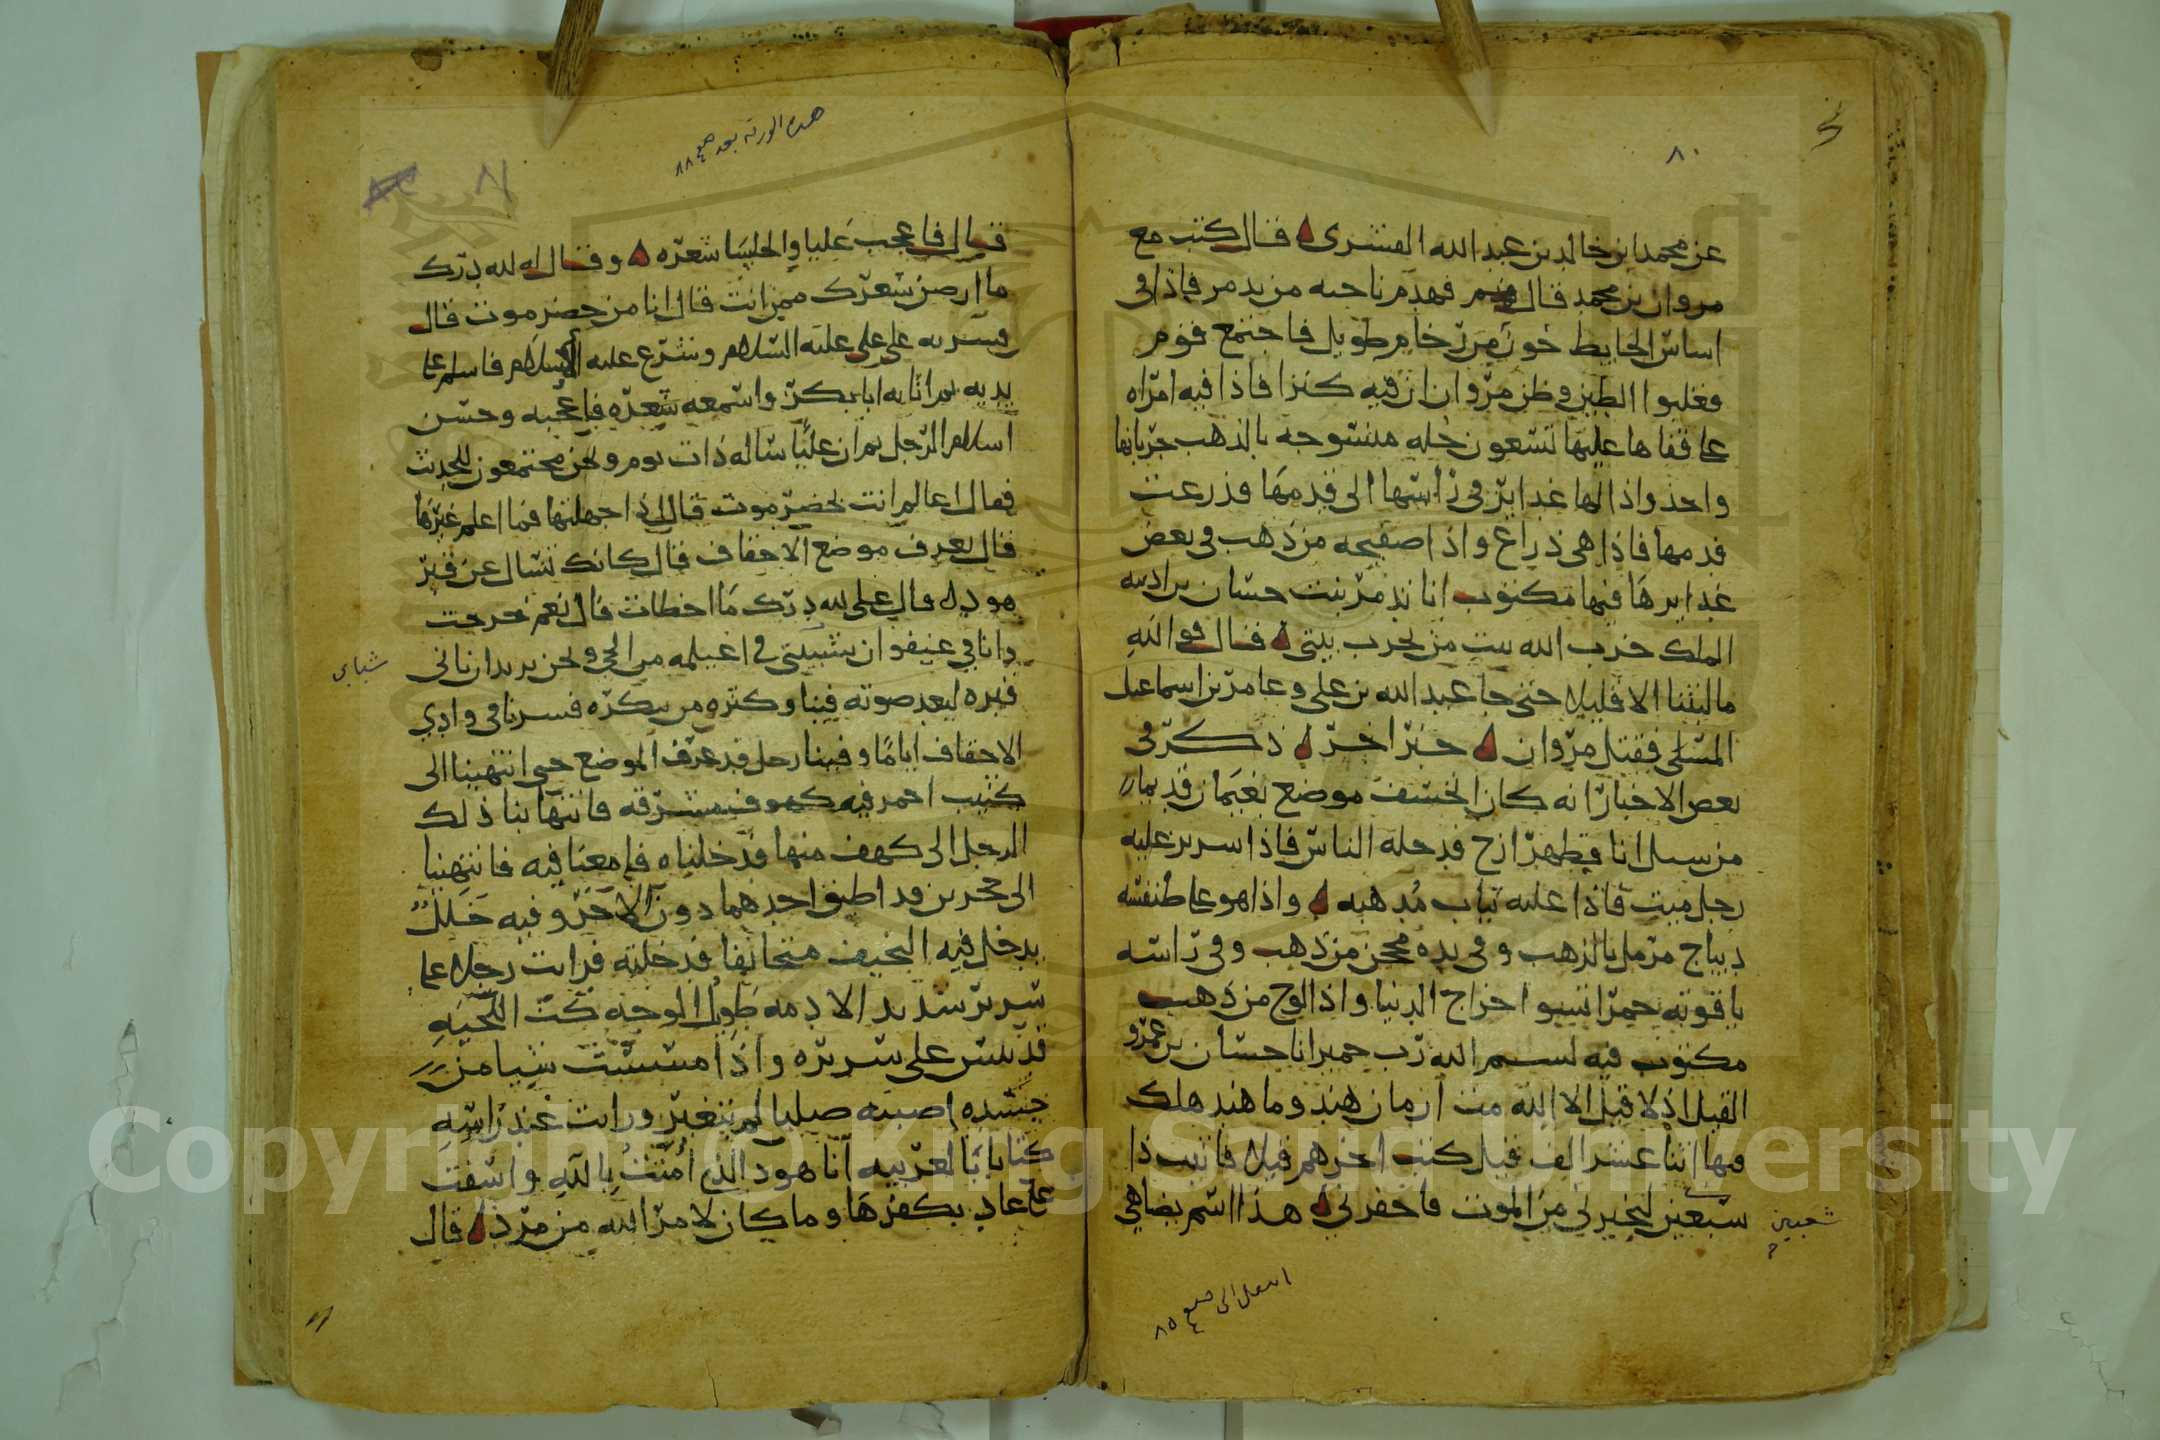 ٨٠
عن محمد ابن خالد بن عبد الله القشري فقال كنت مع
مروان بن محمد قال فهدم ناحيه من تدمر فاذا في
اساس الحايط رخام طويل فاجتمع قوم
فقلبوا الطبق وظن مروان ان فيه كنزا فاذا فيه امراه
على قفاها عليها تسعون حله منسوجه بالذهب جربانها
واحد واذا لها غداير في راسها الى قدمها فذرعت
قدمها فاذا هي ذراع واذا صفيحه من ذهب في بعض
غدايرها فيها مكتوب انا تدمر بنت حسان بن ادينه
الملك خرب الله بيت من يخرب بيتي فقال فوالله
مالبثنا الا قليلا حتى جا عبد الله بن علي وعامر بن اسماعيل
المسلى فقتل مروان خبر اخر ذكر في
بعض الاخبار انه كان الخسف موضع بغيمان قديما
من سيل انا فظهر ازج فدخله الناس فاذا سرير عليه
رجل ميت فاذا عليه ثياب مذهبه واذا هو على طنفسه
ديباج مرمل بالذهب وفي يده محجن من ذهب وفي راسه
ياقوته حمرا تسوا خراج الدنيا واذا لوح من ذهب
مكتوب فيه بسم الله رب حمير انا حسان بن عمرو
القيل اذ لا قيل الا الله مت ازمان هند وما هند هلك
فيها اثنا عشر الف قيل كنت اخرهم قيلا فاتيت ذا
سبعين ليخيرني من الموت فاحفر لي هذا اسم يضاهي
شعبين
انتقل الى صفح ٨٥
هذه الورقه بعد صفح ٨٨
٨١
قال فاعجب عليا والجلسا شعره وقال له لله درك
ما ارصن شعرك ممن انت قال انا من حضرموت قال
فسر به علي علي عليه السلام وشرع عليه الاسلام فاسلم على
يديه ثم اتا به ابا بكر واسمعه شعره فاعجبه وحسن
اسلام الرجل ثم ان عليا ساله ذات يوم ونحن مجتمعون للحديث
فقال اعالم انت بحضرموت قال اذا جهلتها فما اعلم غيرها
قال تعرف موضع الاحقاف قال كانك تسال عن قبر
هود قال علي لله درك ما اخطات قال نعم خرجت
وانا في عنيفوان شبيبتي في اغيلمه من الحي ونحن نريد ان ناتي
شبابي
قبره لبعد صوته فينا وكثره من يذكره فسرنا في وادي
الاحقاف اياما وفينا رجل قد عرف الموضع حتى انتهينا الى
كثيب احمر فيه كهوف مشرفه فانتها بنا ذلك
الرجل الى كهف منها فدخلناه فامعنا فيه فانتهينا
الى حجرين قد اطبق احدهما دون الاخر وفيه خلل
يدخل فيه النحيف متجانفا فدخلته فرايت رجلا على
سرير شديد الادمه طويل الوجه كث اللحيه
قد يبس على سريره واذا مسست شيا من
جسده اصبته صليبا لم يتغير ورايت عند راسه
كتابا بالعربيه انا هود الذي امنت بالله واسفت
على عاد بكفرها وما كان لامر الله من مرد قال
Copyright © King Saud University